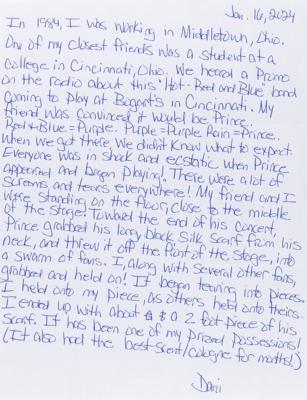 Jan. 16, 2024
In 1984, I was working in Middletown, Ohio.
One of my closest friends was a student at a
college in Cincinnati, Ohio. We heard a Promo
on the radio about this "Hot-Red and Blue" band
coming to play at Bogart's in Cincinnati. My
friend was convinced it would be Prince.
Red+Blue=Purple. Purple=Purple Rain=Prince.
When we got there, we didn't know what to expect.
Everyone was in shock and ecstatic when Prince
appeared and began playing! There were a lot of
screams and tears everywhere! My friend and I
were standing on the floor, close to the middle
of the stage! Toward the end of his concert,
Prince grabbed his long black silk scarf from his
neck, and threw it off the front of the stage, into
a swarm of fans. I, along with several other fans,
grabbed and held on! It began tearing into pieces.
I held onto my piece, as others held onto theirs.
I ended up with about a 2 foot piece of his
scarf. It has been one of my prized possessions!
(It also had the best scent/cologne for months!)
Dani